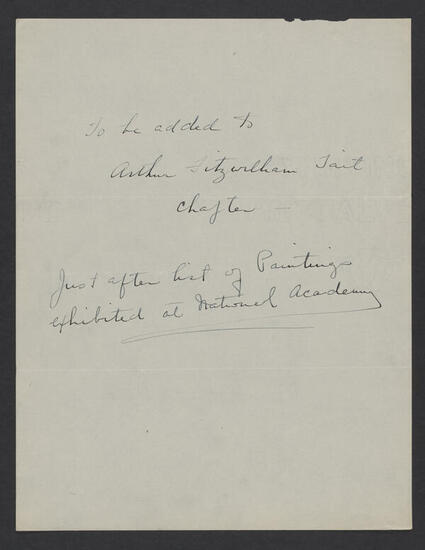 To be added to
Arthur Fitzwilliam Tait
Chapter —
Just after list of Paintings
exhibited at National Academy